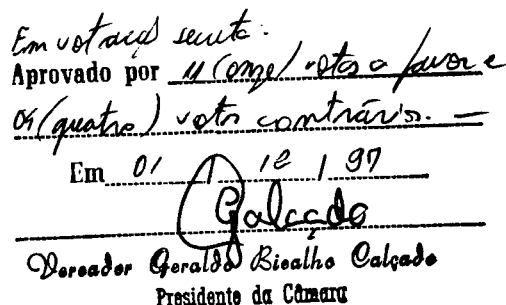 Em votação secreta.
Aprovado por 11 (onze) votos a favor e
04 (quatro) votos contrários. —
Em 01 / 12 / 97
Galcado
Vereador Geraldo Bicalho Calçado
Presidente da Câmara